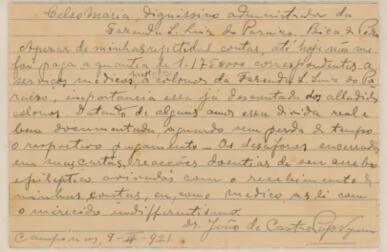 Celso Maria, digníssimo administrador da
Fazenda S. Luiz do Paraizo. Bica de Pedra
Apezar de minhas repetidas contas, até hoje não me
foi paga a quantia de 1.178$000 correspondentes a
serviços medicos, a colonos da Fazenda S. Luiz do Pa-
raizo, importancia essa já descontada dos alludidos
colonos. Datando de alguns annos essa divida real e
bem documentada, aguardo sem perda de tempo
o respectivo pagamento — Os desaforos encerrados
em suas cartas, reacções doentias de seu cerebro
epileptico avivadas com o recebimento de
minhas contas, eu, como medico, as li com
o merecido indifferentismo.
Dr. João de Castro
Campinas, 9-II-921